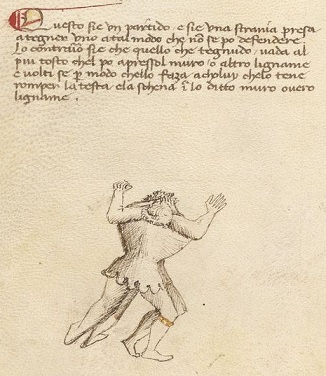 Questo sie un partido e sie una strania presa
a tegnire uno a tal modo che no se po defendere.
Lo contrario sie che quello che tegnudo, vada al
piu tosto chel po apresso l muro o altro ligname
e volti se per modo chello faza achului chelo tene
romper la testa e la schena in lo ditto muro overo
ligname.